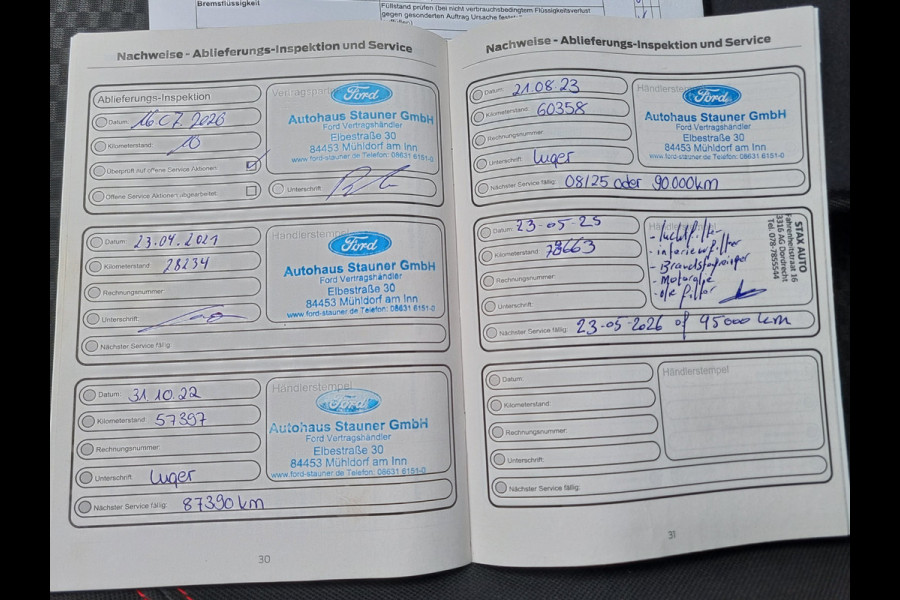 Bremsflüssigkeit
Füllstand prüfen (bei nicht verbrauchsbedingtem Flüssigkeitsverlust
gegen gesonderten Auftrag Ursache
Nachweise - Ablieferungs-Inspektion und Service
Ablieferungs-Inspektion
Datum: 16 07. 2020
Kilometerstand: 10
Überprüft auf offene Service Aktionen
Offene Service Aktionen abgearbeitet
Ford
Autohaus Stauner GmbH
Ford Vertragshändler
Elbestraße 30
84453 Mühldorf am Inn
www.ford-stauner.de Telefon: 08631 6151-0
Unterschrift
Datum: 23.04.2021
Kilometerstand: 28234
Rechnungsnummer:
Unterschrift:
Nächster Service fällig:
Händlerstempel
Ford
Autohaus Stauner GmbH
Ford Vertragshändler
Elbestraße 30
84453 Mühldorf am Inn
www.ford-stauner.de Telefon: 08631 6151-0
Datum: 31.10.22
Kilometerstand: 57397
Rechnungsnummer:
Unterschrift: Luger
Nächster Service fällig: 87390 km
Händlerstempel
Ford
Autohaus Stauner GmbH
Ford Vertragshändler
Elbestraße 30
84453 Mühldorf am Inn
www.ford-stauner.de Telefon: 08631 6151-0
30
Nachweise - Ablieferungs-Inspektion und Service
Datum: 21.08.23
Kilometerstand: 60358
Rechnungsnummer:
Unterschrift: Luger
Nächster Service fällig: 08/25 oder 90000km
Ford
Autohaus Stauner GmbH
Ford Vertragshändler
Elbestraße 30
84453 Mühldorf am Inn
www.ford-stauner.de Telefon: 08631 6151-0
Datum: 23-05-25
Kilometerstand: 78663
Rechnungsnummer:
Unterschrift:
Nächster Service fällig: 23-05-2026 of 95000 km
- luchtfilter
- interieurfilter
- Motorolie
- olie filter
STAX AUTO
Fahrenheitstraat 16
3316 AG Dordrecht
Tel. 078-7855544
Datum:
Kilometerstand:
Rechnungsnummer:
Unterschrift:
Nächster Service fällig:
Händlerstempel
31